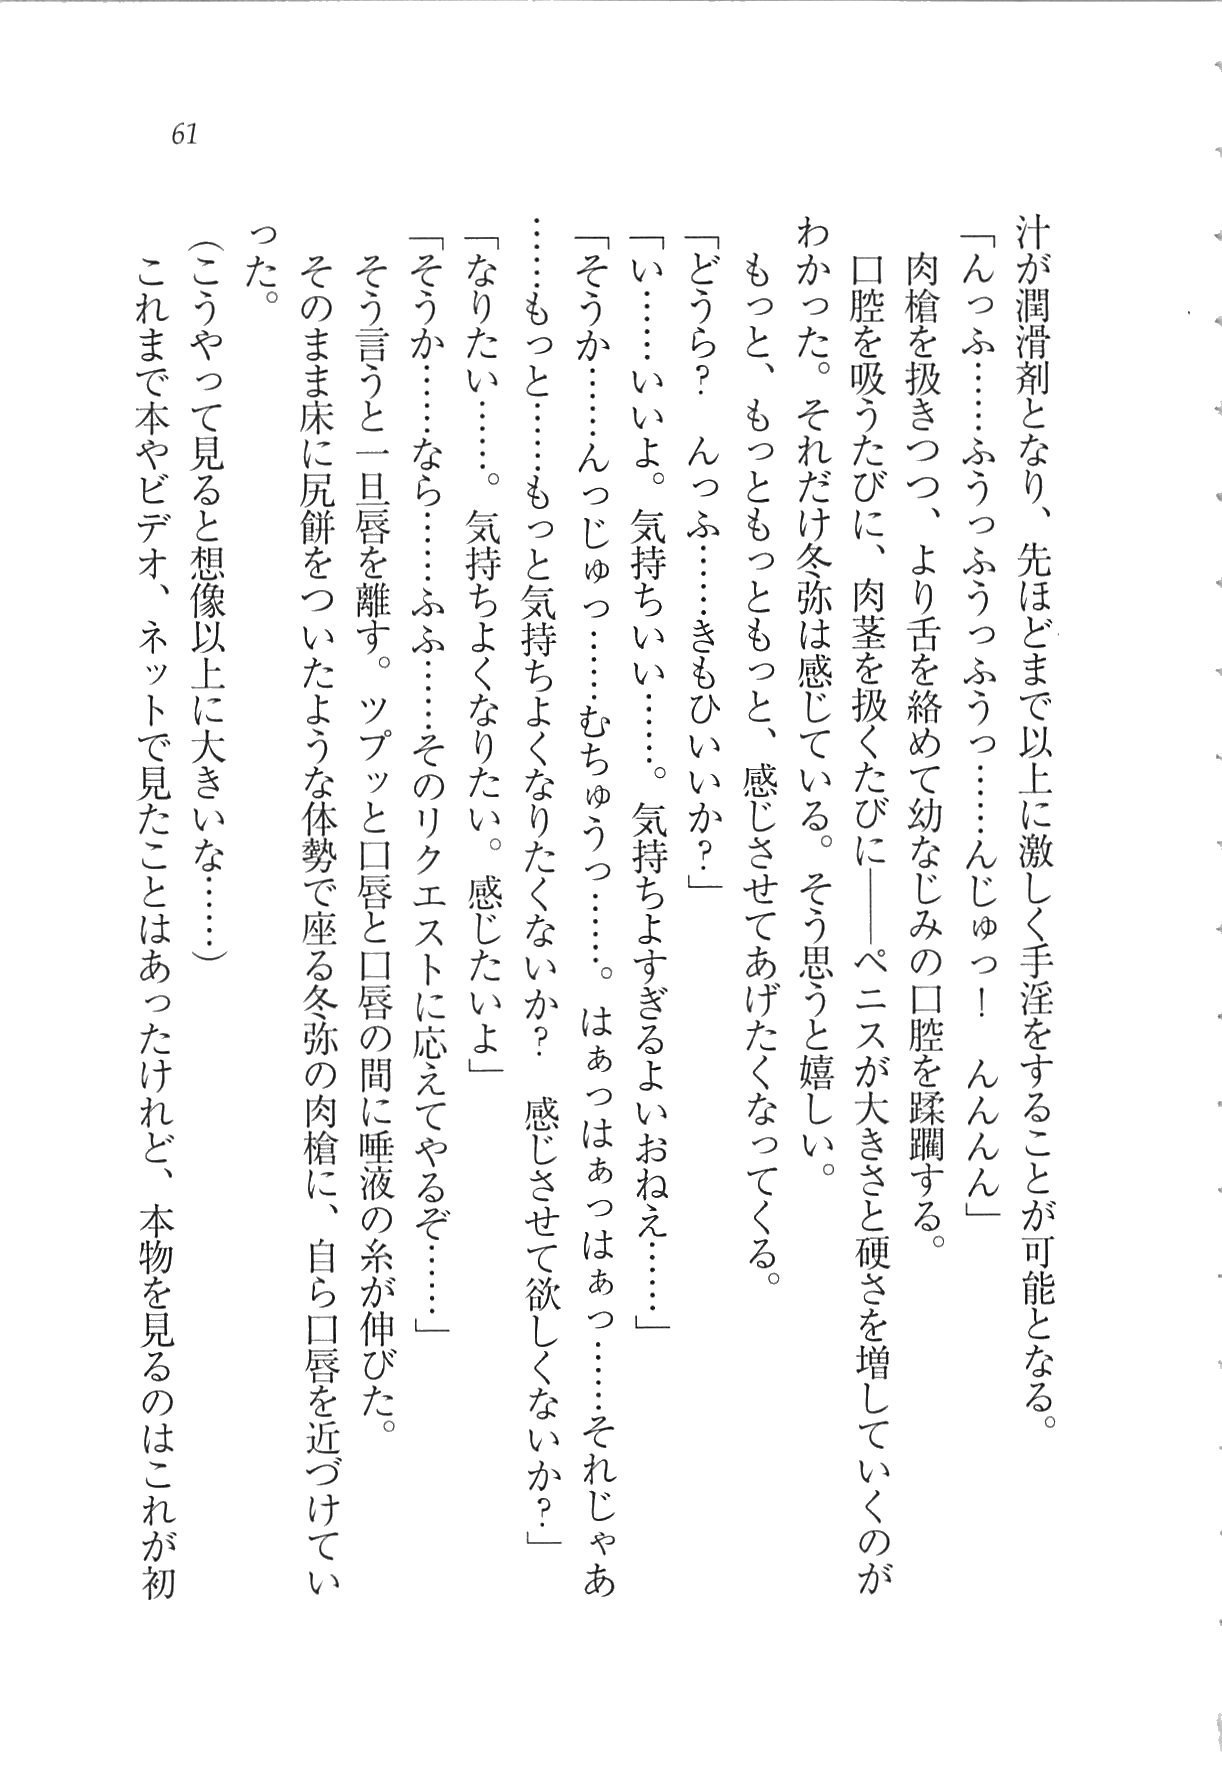 61
汁が潤滑剤となり、先ほどまで以上に激しく手淫をすることが可能となる。
「んっふ……ふうっふうっふうっ……んじゅっ！　んんんん」
肉槍を扱きつつ、より舌を絡めて幼なじみの口腔を蹂躙する。
口腔を吸うたびに、肉茎を扱くたびに――ペニスが大きさと硬さを増していくのが
わかった。それだけ冬弥は感じている。そう思うと嬉しい。
もっと、もっともっともっと、感じさせてあげたくなってくる。
「どうら？　んっふ……きもひいいか？」
「い……いいよ。気持ちいい……。気持ちよすぎるよいおねえ……」
「そうか……んっじゅっ……むちゅうっ……。はぁっはぁっはぁっ……それじゃあ
……もっと……もっと気持ちよくなりたくないか？　感じさせて欲しくないか？」
「なりたい……。気持ちよくなりたい。感じたいよ」
「そうか……なら……ふふ……そのリクエストに応えてやるぞ……」
そう言うと一旦唇を離す。ツプッと口唇と口唇の間に唾液の糸が伸びた。
そのまま床に尻餅をついたような体勢で座る冬弥の肉槍に、自ら口唇を近づけてい
った。
（こうやって見ると想像以上に大きいな……）
これまで本やビデオ、ネットで見たことはあったけれど、本物を見るのはこれが初